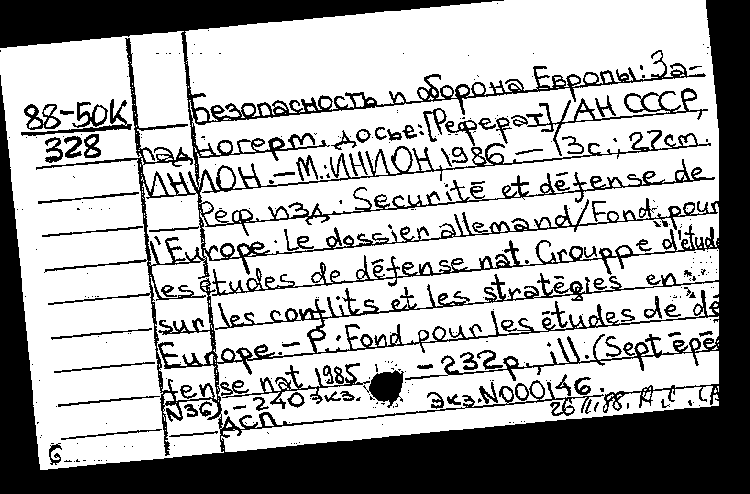 88-50К
328
Безопасность и оборона Европы: За-
падногерм. досье: [Реферат]/АН СССР,
ИНИОН. – М.: ИНИОН, 1986. – 13с.; 27см.
Реф. изд.: Securité et défense de
l'Europe: Le dossier allemand/Fond. pour
les études de défense nat. Grouppe d'étude
sur les conflits et les stratégies en
Europe. – P.: Fond. pour les études de dé
fense nat 1985 – 232p., ill. (Sept épée
N36). – 240 экз. Экз. N000146.
ДСП. 26 II.88.
6